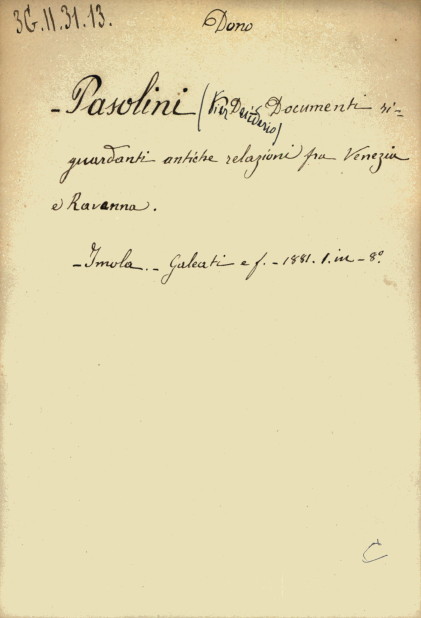 3G.II.31.13.
Dono
- Pasolini (Pier Desiderio) Documenti ri=
guardanti antiche relazioni fra Venezia
e Ravenna.
- Imola. - Galeati e f. - 1881. 1. in - 8º.
C